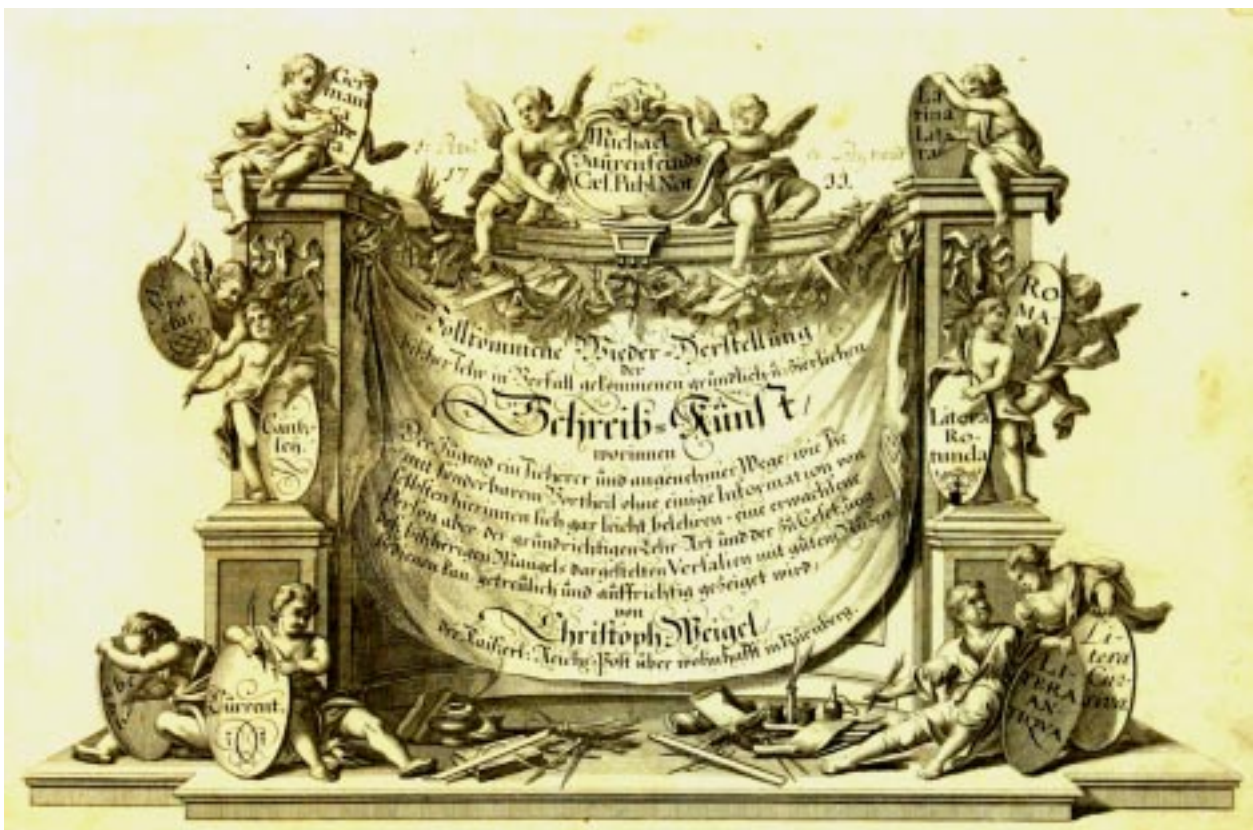 Ger
mani
ca
Michael
Baurenfeinds
Cæs. Publ. Not.
La
tina
Lite
ræ
17
33.
Canz-
ley.
RO
MA
Litera
Ro-
tunda
Vollkommene Wieder-Herstellung
der
bisher sehr in Verfall gekommenen gründlich u. zierlichen
Schreib-Kunst/
worinnen
Der Jugend ein sicherer und angenehmer Wege, wie sie
mit sonderbarem Vortheil ohne einige Information von
selbsten hierinnen sich gar leicht belehren, eine erwachsene
Person aber der grundrichtigen Lehr-Art und der zu Ersetzung
des bißherigen Mangels dargestelten Versalien mit gutem Nutzen
bedienen kan, getreulich und auffrichtig gezeiget wird,
von
Christoph Weigel,
der Kaiserl: Reichs-Post über wohnhafft in Nürnberg.
Current.
LI-
TERA
AN-
TIQVA
Li-
tera
Cur-
siva.